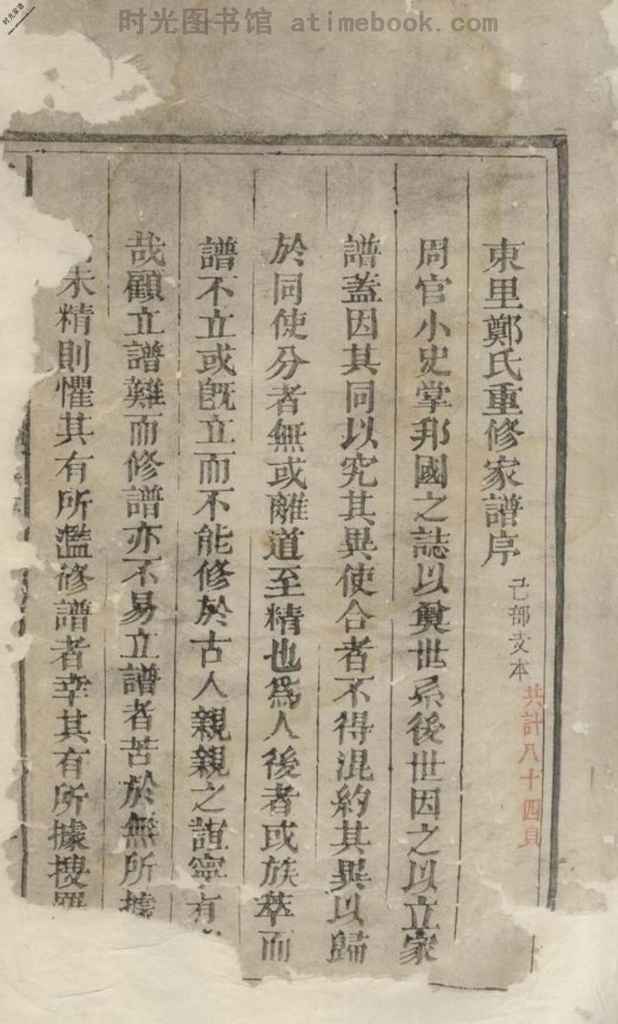 时光家谱
时光图书馆 atimebook.com
東里鄭氏重修家譜序 己部支本 共計八十四頁
周官小史掌邦國之誌以奠世系後世因之以立家
譜蓋因其同以究其異使合者不得混約其異以歸
於同使分者無或離道至精也為人後者或族萃而
譜不立或旣立而不能修於古人親親之誼寧有
哉顧立譜難而修譜亦不易立譜者苦於無所據
未精則懼其有所濫修譜者幸其有所據搜羅